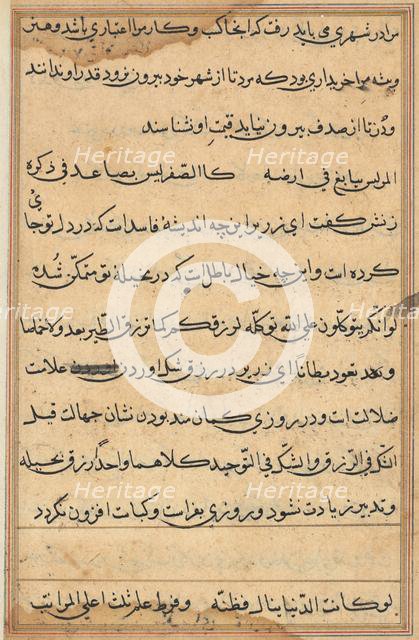 مرا در شهری می باید رفت که انجا کسب و کار مرا اعتباری باشد و هنر
و پیشه مرا خریداری بود که مرد تا از شهر خود بیرون نرود قدر او ندانند
و در تا از صدف بیرون نیاید قیمت او نشناسند
المر لیس ببالغ فی ارضه کالصقر لیس بصاعد فی وکره
زنش کفت ای زریر این چه اندیشهٔ فاسد است که در دل تو جای
کرده است و این چه خیال باطل است که در مخیلهٔ تو متمکن شده
لو انکم یتوکلون علی الله توکله لرزقکم کما یرزق الطیر یغدو خماصا
و تعود بطانا ای زریر در رزق شک اوردن علامت
ضلالت است و در روزی کمان مند بودن نشان جهالت قیل
الشک فی الرزق والشک فی التوحید کلاهما واحد رزق بحیله
و تدبیر زیادت نشود و روزی بفراست و کیاست افزون نکردد
لو کانت الدنیا ینال بفطنة و فرط علم نلت اعلی المراتب
Heritage
Heritage
Heritage
Heritage
Heritage
Heritage